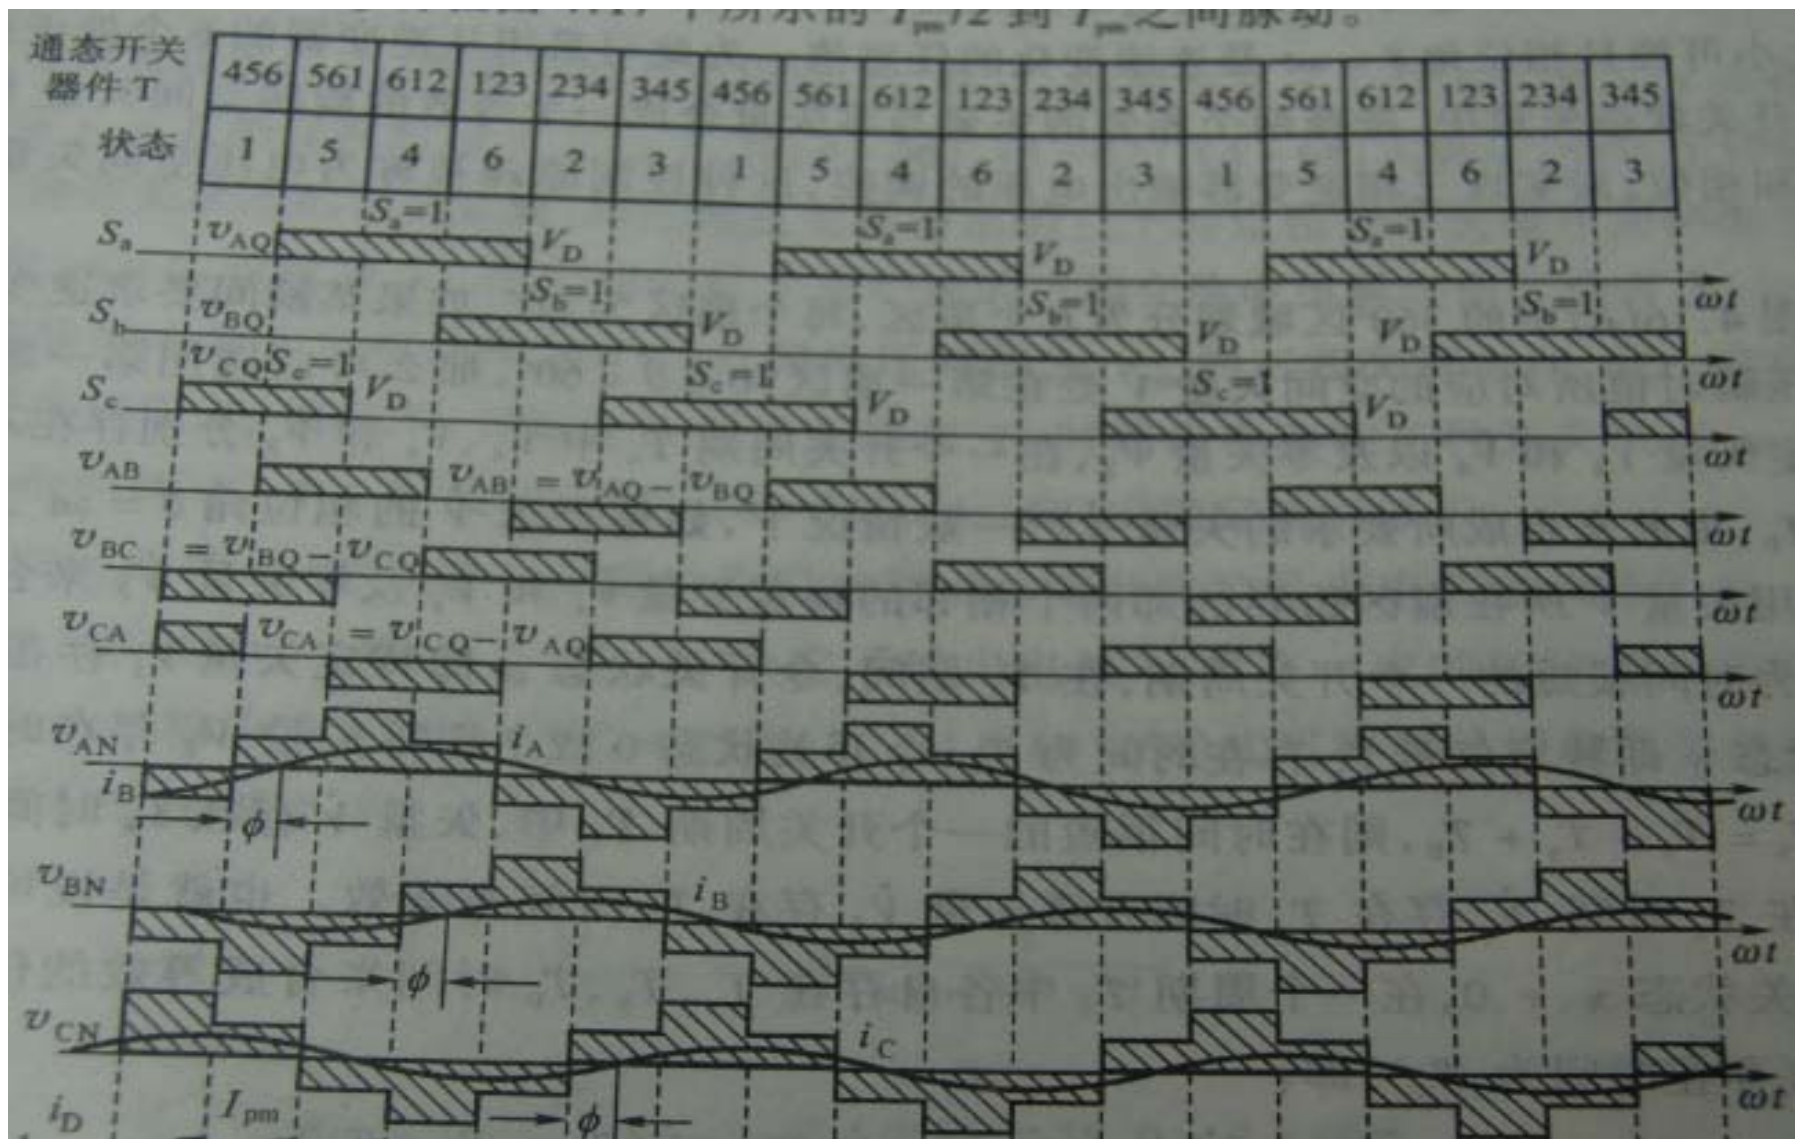 到 Ipm 之间脉动。
通态开关
器件T 456 561 612 123 234 345 456 561 612 123 234 345 456 561 612 123 234 345
状态 1 5 4 6 2 3 1 5 4 6 2 3 1 5 4 6 2 3
Sa vAQ Sa=1 VD Sa=1 VD Sa=1 VD ωt
Sb vBQ Sb=1 VD Sb=1 VD VD Sb=1 ωt
Sc vCQ Sc=1 VD Sc=1 VD Sc=1 VD ωt
vAB vAB = vAQ − vBQ ωt
vBC = vBQ − vCQ ωt
vCA vCA = vCQ − vAQ ωt
vAN iA
iB ϕ ωt
vBN iB ωt
ϕ
vCN iC ωt
iD Ipm ϕ